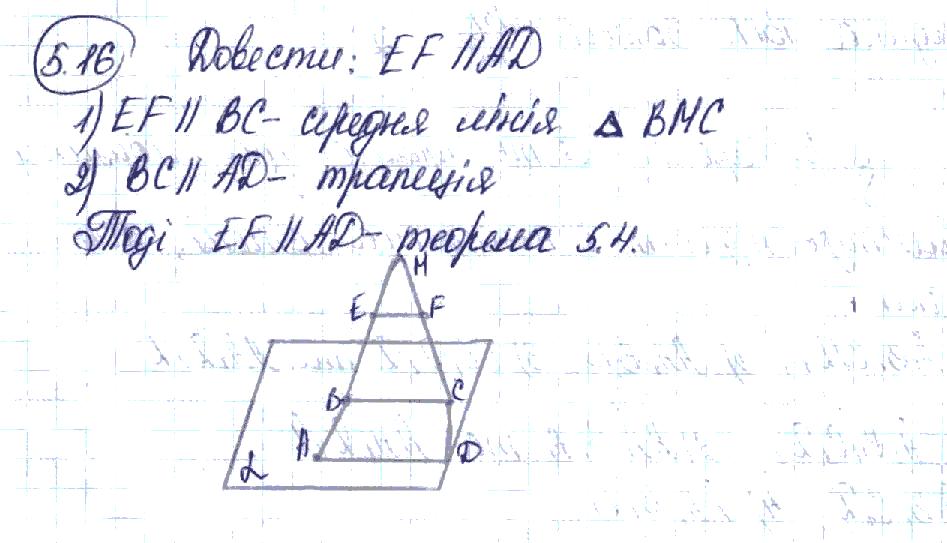 5.16 Довести: EF || AD
1) EF || BC - середня лінія △ BMC
2) BC || AD - трапеція
Тоді EF || AD - теорема 5.4.
M
E F
B C
A D
α